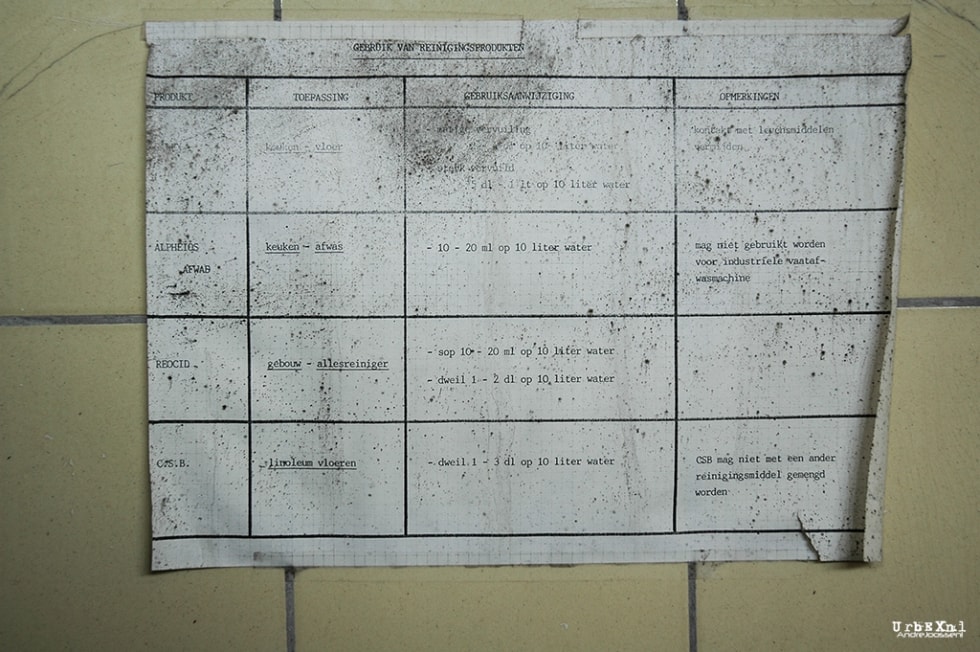 GEBRUIK VAN REINIGINGSPRODUKTEN
PRODUKT TOEPASSING GEBRUIKSAANWIJZIGING OPMERKINGEN
keuken - vloer
vervuiling
op 10 liter water
vervuild
5 dl - 1 lt op 10 liter water
kontakt met levensmiddelen
vermijden
ALPHEIOS
AFWAS
keuken - afwas
- 10 - 20 ml op 10 liter water
mag niet gebruikt worden
voor industriele vaataf-
wasmachine
REOCID
gebouw - allesreiniger
- sop 10 - 20 ml op 10 liter water
- dweil 1 - 2 dl op 10 liter water
C.S.B.
linoleum vloeren
- dweil 1 - 3 dl op 10 liter water
CSB mag niet met een ander
reinigingsmiddel gemengd
worden
UrbEXnl
AndreJoosse.nl